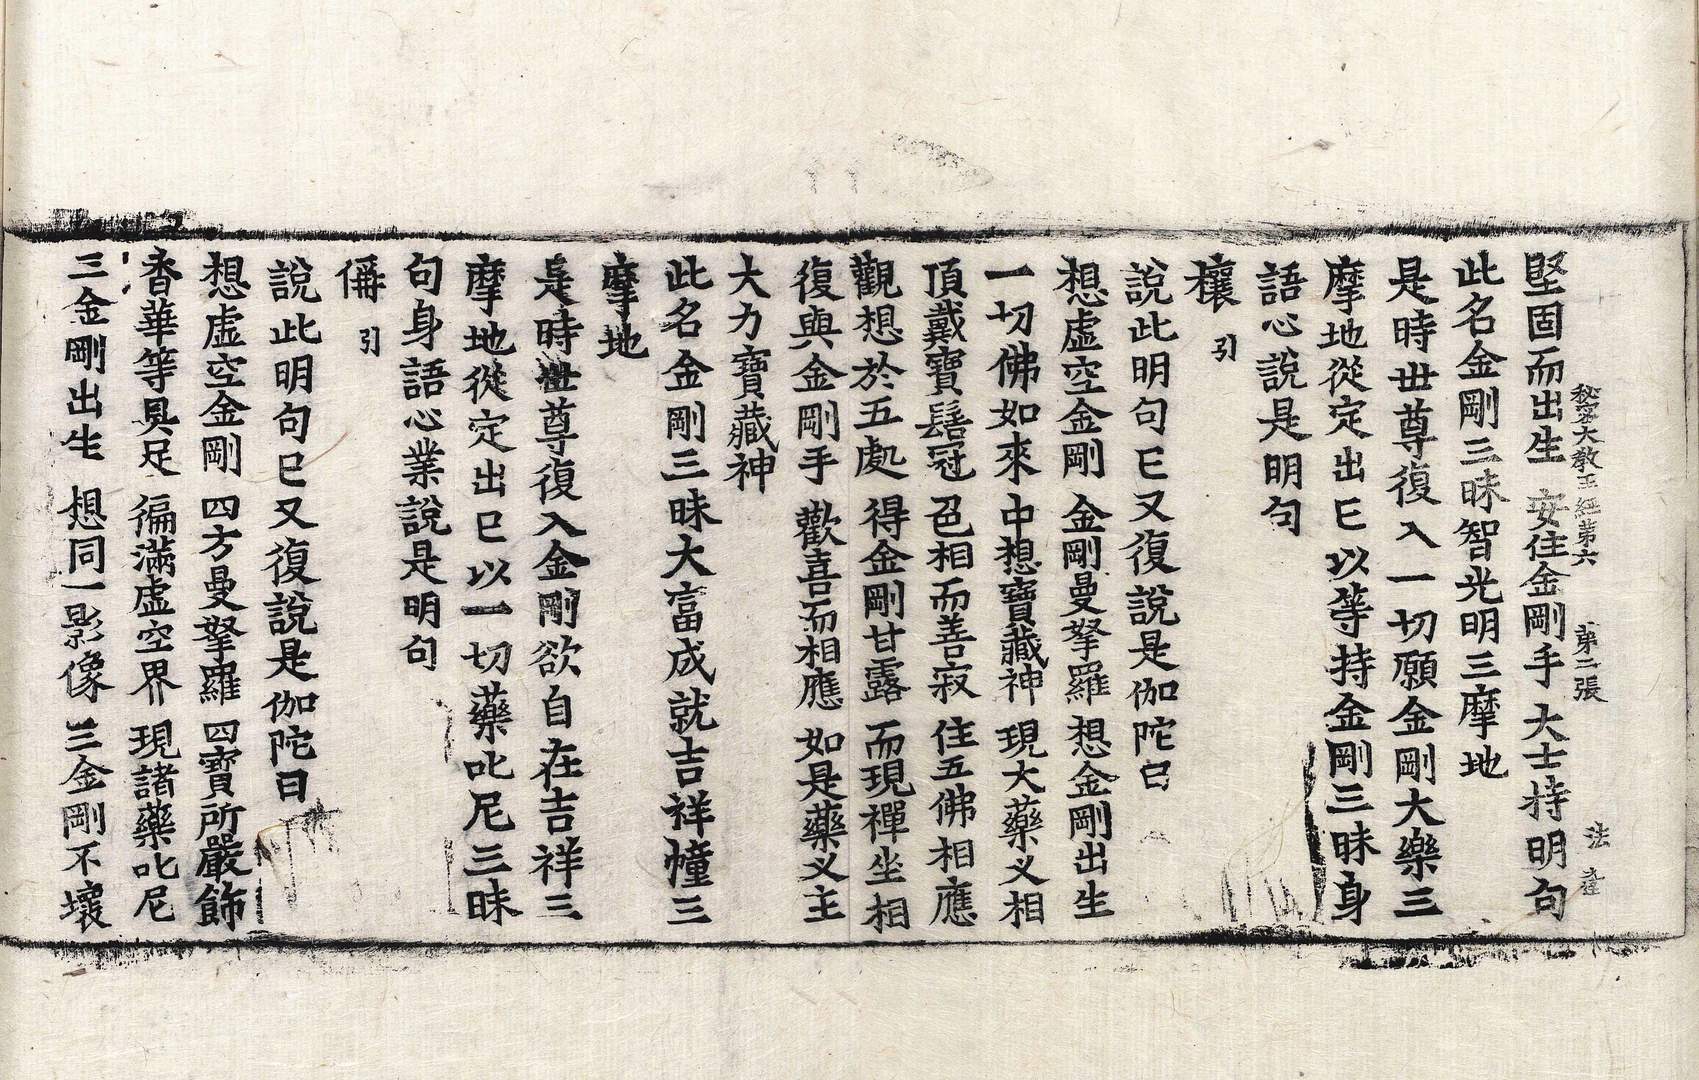 秘密大教王經第六　第二張　法達
堅固而出生　安住金剛手　大士持明句
此名金剛三昧智光明三摩地
是時世尊復入一切願金剛大樂三
摩地從定出已以等持金剛三昧身
語心說是明句
穰引
說此明句已又復說是伽陀曰
想虛空金剛　金剛曼拏羅　想金剛出生
一切佛如來　中想寶藏神　現大藥叉相
頂戴寶髻冠　色相而善寂　住五佛相應
觀想於五處　得金剛甘露　而現禪坐相
復與金剛手　歡喜而相應　如是藥叉主
大力寶藏神
此名金剛三昧大富成就吉祥幢三
摩地
是時世尊復入金剛欲自在吉祥三
摩地從定出已以一切藥叱尼三昧
句身語心業說是明句
偋引
說此明句已又復說是伽陀曰
想虛空金剛　四方曼拏羅　四寶所嚴飾
香華等具足　徧滿虛空界　現諸藥叱尼
三金剛出生　想同一影像　三金剛不壞